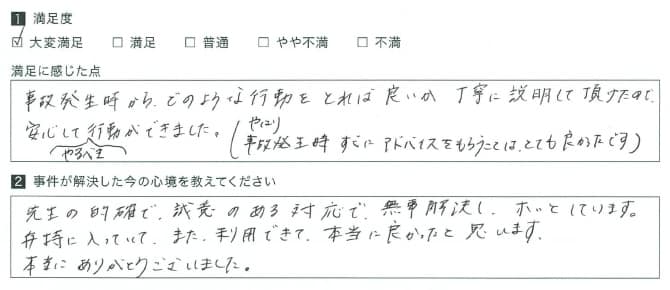 1 満足度
☑ 大変満足 □ 満足 □ 普通 □ やや不満 □ 不満
満足に感じた点
事故発生時から、どのような行動をとれば良いか 丁寧に説明して頂けたので、
安心して行動ができました。
やるべき
(やはり
事故発生時 すぐに アドバイスをもらうことは、とても良かったです)
2 事件が解決した今の心境を教えてください
先生の的確で、誠意のある対応で、無事解決し、ホッとしています。
弁特に入っていて、また、利用できて、本当に良かったと思います。
本当にありがとうございました。